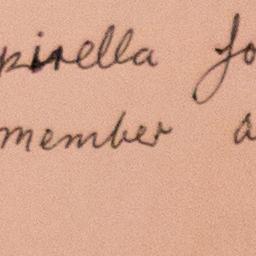 pirella fo
member a